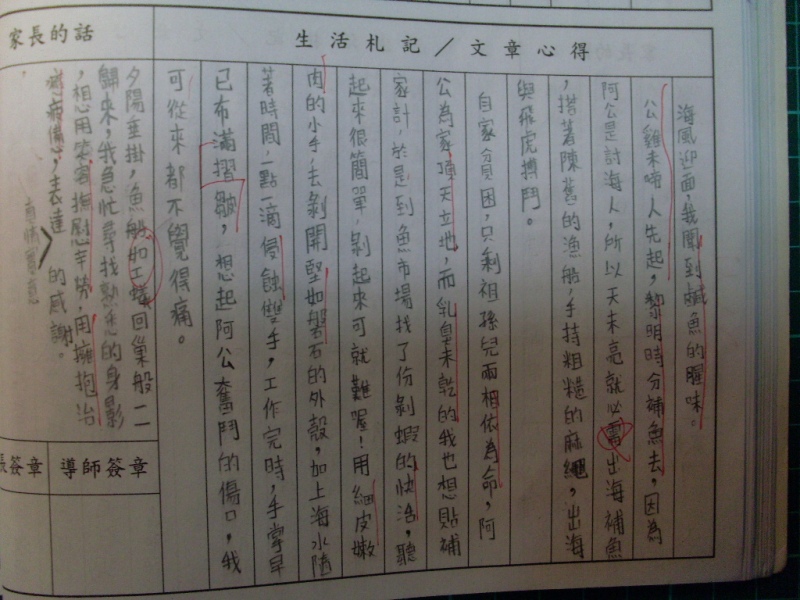 生活札記／文章心得
海風迎面，我聞到鹹魚的腥味。
公雞未啼人先起，黎明時分補魚去，因為
阿公是討海人，所以天未亮就必需出海補魚
，搭著陳舊的漁船，手持粗糙的麻繩，出海
與飛虎搏鬥。
自家分貝困，只剩祖孫兒兩相依為命，阿
公為家頂天立地，而乳臭未乾的我也想貼補
家計，於是到魚市場找了份剝蝦的快活，聽
起來很簡單，剝起來可就難喔！用細皮嫩
肉的小手，去剝開堅如磐石的外殼，加上海水隨
著時間，一點一滴侵蝕雙手，工作完時，手掌早
已布滿摺皺，想起阿公奮鬥的傷口，我
可從來都不覺得痛。
家長的話
夕陽垂掛，漁船如工蟻回巢般一一
歸來，我急忙尋找熟悉的身影
，想用笑容撫慰辛勞，用擁抱治
癒疲憊，表達 的感謝。
長簽章
導師簽章